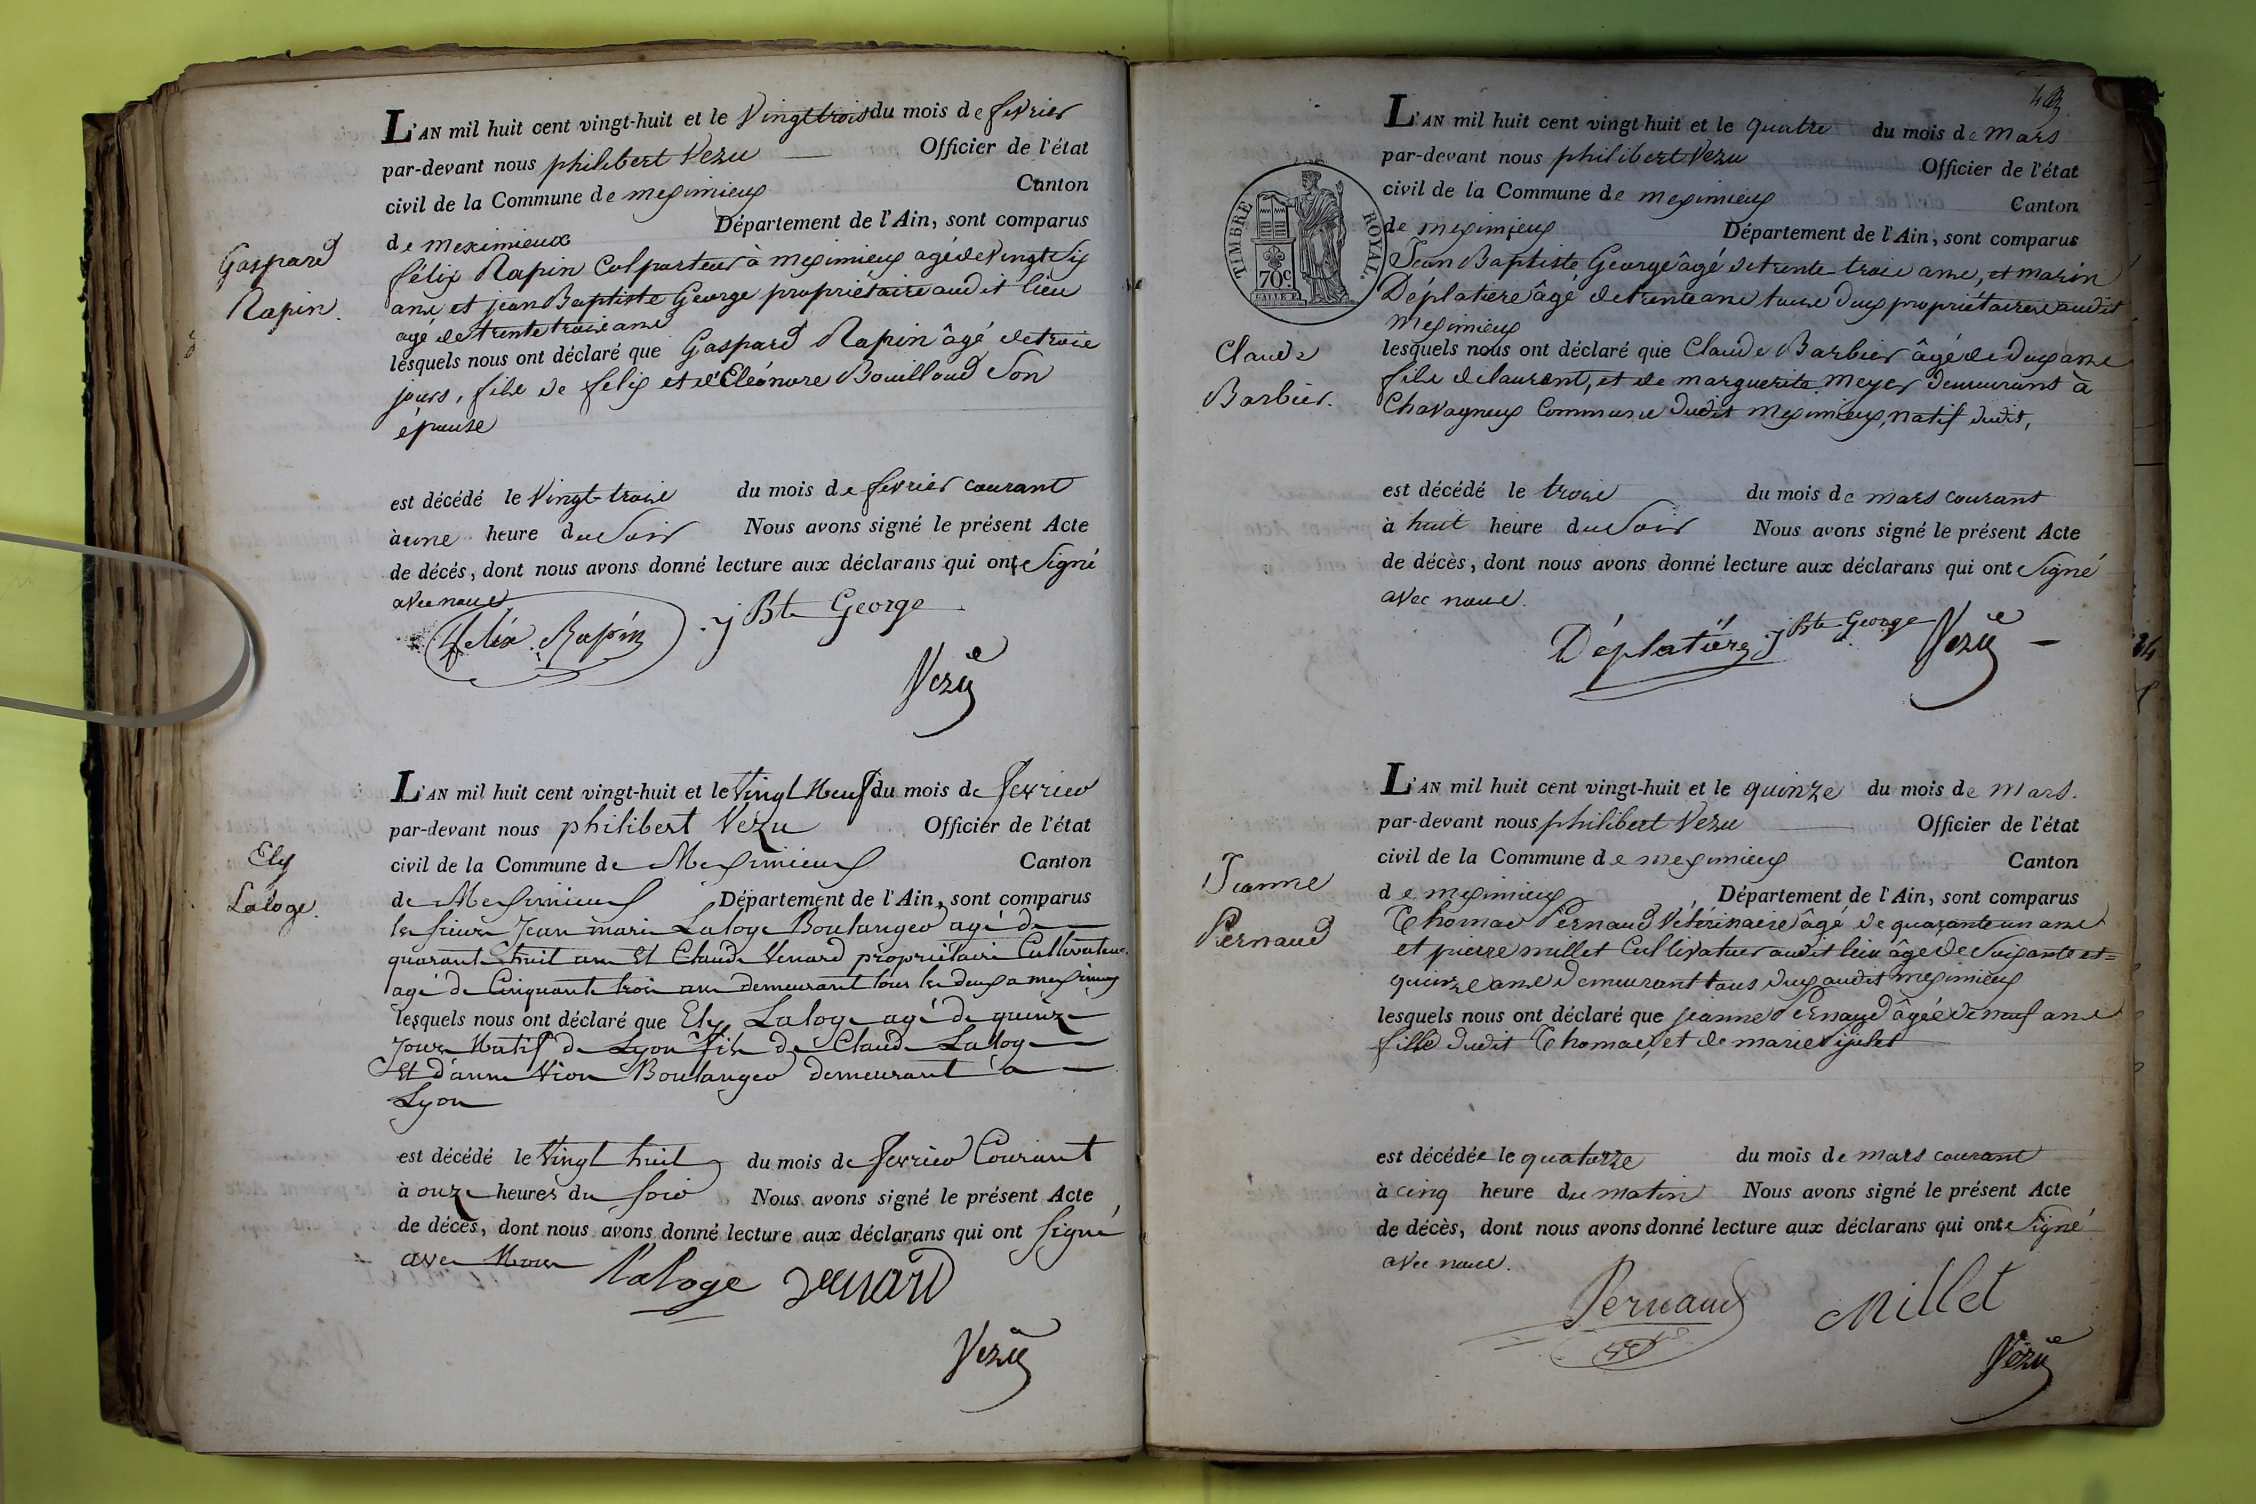 Gaspard
Rapin.
L'AN mil huit cent vingt-huit et le Vingt trois du mois de fevrier
par-devant nous philibert Vezu Officier de l'état
civil de la Commune de meximieux Canton
de meximieux Département de l'Ain, sont comparus
félix Rapin Colporteur à meximieux agé de Vingt Six
ans et jean Baptiste George propriétaire audit lieu
agé de trente trois ans
lesquels nous ont déclaré que Gaspard Rapin âgé de trois
jours, fils de felix et d'Eléonore Bouilloud Son
épouse
est décédé le Vingt-trois du mois de fevrier courant
à une heure du Soir Nous avons signé le présent Acte
de décés, dont nous avons donné lecture aux déclarans qui ont Signé
avec nous
félix Rapin j Bte George
Vezu
Ely
Laloge.
L'AN mil huit cent vingt-huit et le Vingt Neuf du mois de fevrier
par-devant nous philibert Vezu Officier de l'état
civil de la Commune de Meximieux Canton
de Meximieux Département de l'Ain, sont comparus
les sieurs Jean marie Laloge Boulanger agé de
quarante huit ans Et Claude Venard propriétaire Cultivateur
agé de Cinquante trois ans demeurant tous les deux a meximieux
lesquels nous ont déclaré que Ely Laloge agé de quinze
Jours Natif de Lyon fils de Claude Laloge
Et d'anne Vion Boulanger demeurant à
Lyon
est décédé le Vingt huit du mois de fevrier Courant
à onze heures du soir Nous avons signé le présent Acte
de décès, dont nous avons donné lecture aux déclarans qui ont signé
avec Nous
Laloge Venard
Vezu
TIMBRE ROYAL.
70c.
Claude
Barbier.
L'AN mil huit cent vingt huit et le quatre du mois de mars
par-devant nous philibert Vezu Officier de l'état
civil de la Commune de meximieux Canton
de meximieux Département de l'Ain, sont comparus
Jean Baptiste George âgé de trente trois ans, et marin
Déplatiere âgé de trente ans tous deux propriétaires audit
meximieux
lesquels nous ont déclaré que Claude Barbier âgé de deux ans
fils de laurent, et de marguerite meyer demeurant à
Chavagneux Commune dudit meximieux, natif dudit,
est décédé le trois du mois de mars courant
à huit heure du Soir Nous avons signé le présent Acte
de décès, dont nous avons donné lecture aux déclarans qui ont Signé
avec nous.
Déplatière j Bte George Vezu
Jeanne
Pernaud
L'AN mil huit cent vingt-huit et le quinze du mois de mars.
par-devant nous philibert Vezu Officier de l'état
civil de la Commune de meximieux Canton
de meximieux Département de l'Ain, sont comparus
Thomas Pernaud Vétérinaire âgé de quarante un ans
et pierre millet Cultivateur audit lieu âgé de Soixante et=
quinze ans demeurant tous deux audit meximieux
lesquels nous ont déclaré que jeanne Pernaud âgée de neuf ans
fille dudit Thomas, et de marie
est décédée le quatorze du mois de mars courant
à cinq heure du matin Nous avons signé le présent Acte
de décès, dont nous avons donné lecture aux déclarans qui ont Signé
avec nous.
Pernaud Millet
Vezu